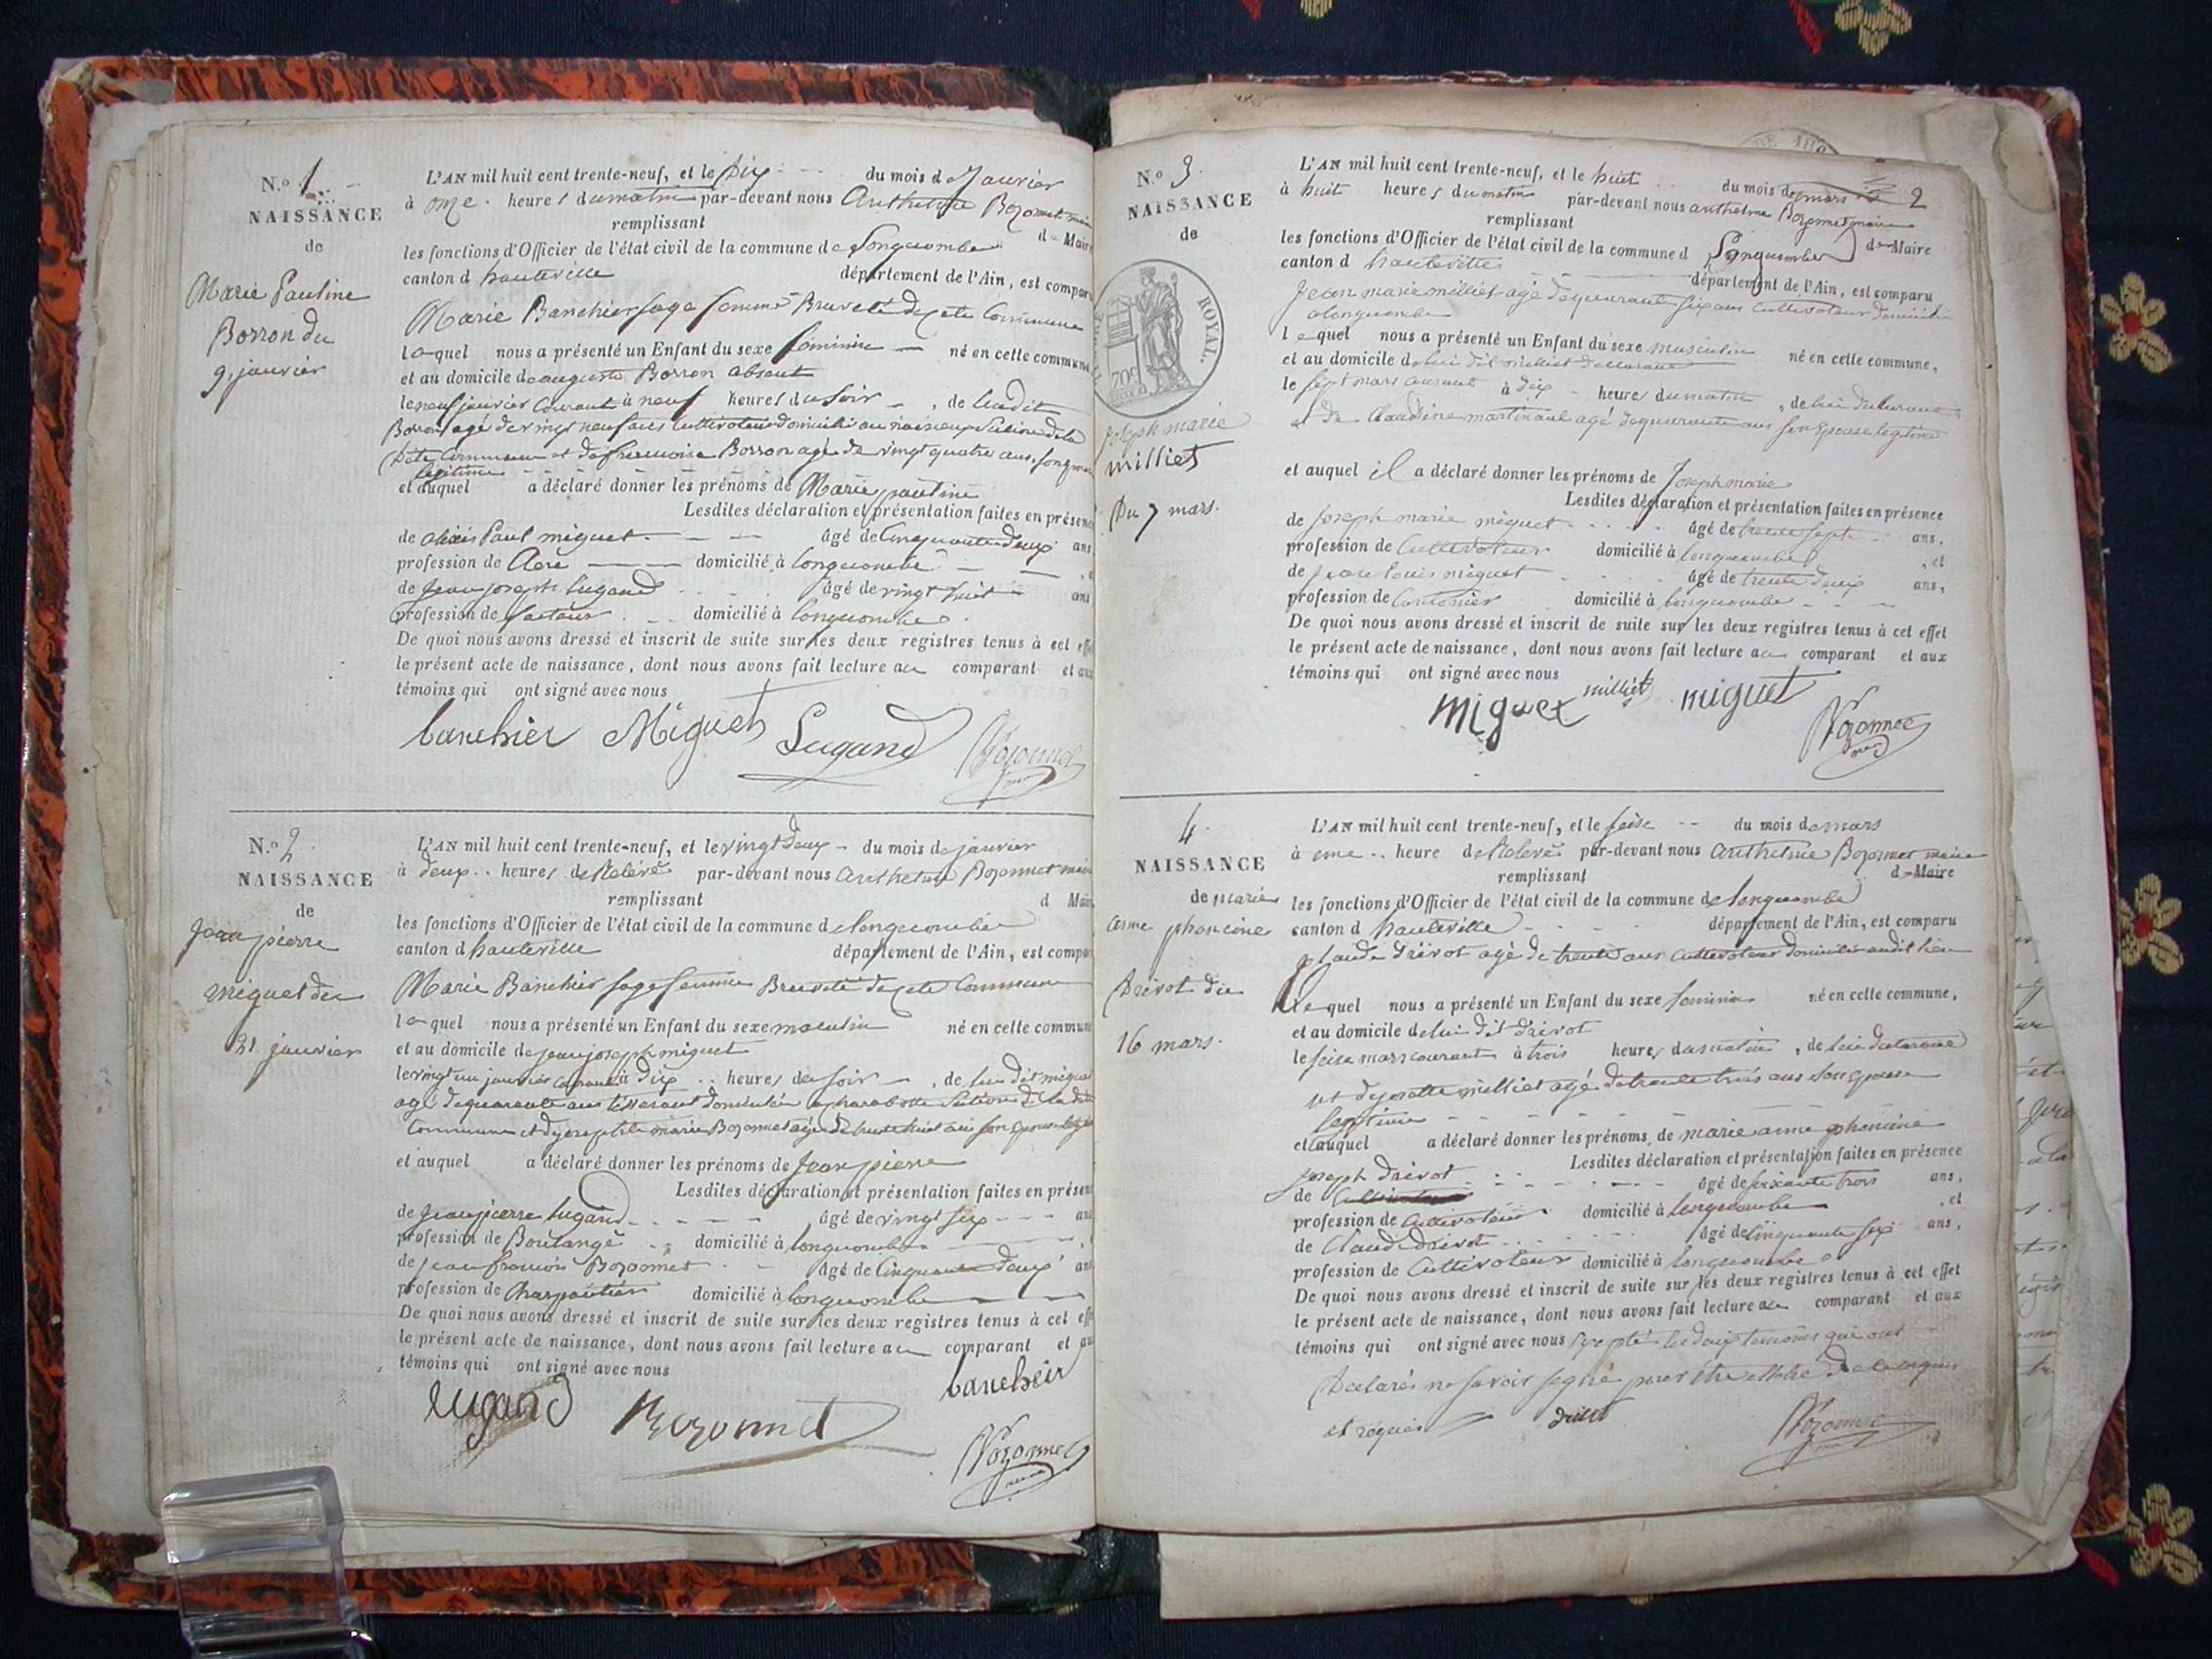 N.o 1
NAISSANCE
de
Marie Pauline
Borron du
9 janvier
L'AN mil huit cent trente-neuf, et le Dix du mois de Janvier
à onze heures du matin par-devant nous Anthelme Bozonnet maire
remplissant
les fonctions d'Officier de l'état civil de la commune de Longecombe
canton d hauteville département de l'Ain, est compar
Marie Banchier sage femme Breveté de cete Commune
laquel nous a présenté un Enfant du sexe féminin né en cette commune
et au domicile de auguste Borron absent
le neuf janvier Courant à neuf heures du Soir, de Ledit
Borron agé de vingt neuf ans Cultivateur domicilié
Commune et de Borron agé de vingt quatre ans
légitime
et auquel a déclaré donner les prénoms de Marie pauline
Lesdites déclaration et présentation faites en présen
de alexis Paul miguet âgé de Cinquante deux ans
profession de domicilié à longecombe
de Jean joseph Lugand âgé de vingt huit ans
profession de facteur domicilié à longecombe
De quoi nous avons dressé et inscrit de suite sur les deux registres tenus à cet effe
le présent acte de naissance, dont nous avons fait lecture au comparant et aux
témoins qui ont signé avec nous
banchier Miguet Lugand Bozonnet
N.o 2
NAISSANCE
de
Jean pierre
miguet du
21 janvier
L'AN mil huit cent trente-neuf, et le vingt deux du mois de janvier
à deux heures de Relevé par-devant nous Anthelme Bozonnet maire
remplissant d Mair
les fonctions d'Officier de l'état civil de la commune de longecombe
canton d hauteville département de l'Ain, est compar
Marie Banchier sage femme Breveté de cete Commune
laquel nous a présenté un Enfant du sexe masculin né en cette commune
et au domicile de jean joseph miguet
le vingt un janvier Courant à dix heures du soir, de lui dit miguet
agé de quarante ans tisserant domicilié a
Commune et de marie Bozonnet agé de trente huit ans son Epouse
et auquel a déclaré donner les prénoms de Jean pierre
Lesdites déclaration et présentation faites en présen
de Jean pierre Lugand âgé de vingt six ans
profession de Boulangé domicilié à longecombe
de jean francois Bozonnet âgé de Cinquante deux an
profession de Charpentier domicilié à longecombe
De quoi nous avons dressé et inscrit de suite sur les deux registres tenus à cet eff
le présent acte de naissance, dont nous avons fait lecture au comparant et au
témoins qui ont signé avec nous
lugand Bozonnet banchier
Bozonnet
2
N.o 3
NAISSANCE
de
ROYAL.
70c
Joseph marie
milliet
Du 7 mars.
L'AN mil huit cent trente-neuf, et le huit du mois de mars
à huit heures du matin par-devant nous anthelme Bozonnet maire
remplissant
les fonctions d'Officier de l'état civil de la commune d Longecombe de Maire
canton d hauteville département de l'Ain, est comparu
Jean marie milliet agé de quarante six ans Cultivateur domicilié
a longecombe
lequel nous a présenté un Enfant du sexe masculin né en cette commune,
et au domicile de lui dit milliet declarant
le sept mars courant à dix heures du matin, de lui declarant
et de Claudine martinant agé de quarante ans son Epouse légitime
et auquel il a déclaré donner les prénoms de Joseph marie
Lesdites déclaration et présentation faites en présence
de Joseph marie miguet âgé de trente sept ans,
profession de Cultivateur domicilié à longecombe, et
de jean louis miguet âgé de trente deux ans,
profession de Cantonier domicilié à longecombe
De quoi nous avons dressé et inscrit de suite sur les deux registres tenus à cet effet
le présent acte de naissance, dont nous avons fait lecture au comparant et aux
témoins qui ont signé avec nous
Miguet milliet miguet
Bozonnet
4
NAISSANCE
de marie
anne phancine
Drivot du
16 mars.
L'AN mil huit cent trente-neuf, et le seise du mois de mars
à une heure de Relevé par-devant nous Anthelme Bozonnet maire
remplissant d Maire
les fonctions d'Officier de l'état civil de la commune de longecombe
canton d hauteville département de l'Ain, est comparu
Claude Drivot agé de trente ans cultivateur domicilié audit lieu
lequel nous a présenté un Enfant du sexe feminin né en cette commune,
et au domicile de lui dit Drivot
le seise mars courant à trois heures du matin, de lui declarant
et de milliet agé de trente trois ans son Epouse
légitime
et auquel a déclaré donner les prénoms de marie anne phancine
Lesdites déclaration et présentation faites en présence
de Joseph Drivot âgé de soixante trois ans,
profession de Cultivateur domicilié à longecombe, et
de Claude Drivot âgé de Cinquante six ans,
profession de Cultivateur domicilié à longecombe
De quoi nous avons dressé et inscrit de suite sur les deux registres tenus à cet effet
le présent acte de naissance, dont nous avons fait lecture au comparant et aux
témoins qui ont signé avec nous excepté les deux temoins qui ont
Declarés ne savoir signé pour être de ce
et requis drivot Bozonnet